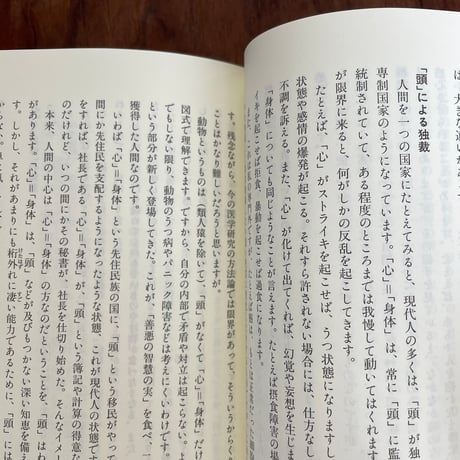 は、大きな違いがある
「頭」による独裁
人間を一つの国家にたとえてみると、現代人の多くは、「頭」が独
専制国家のようになっています。「心」=「身体」は、常に「頭」に監
統制されていて、ある程度のところまでは我慢して動いてはくれます
が限界に来ると、何がしかの反乱を起こします。
たとえば、「心」がストライキを起こせば、うつ状態になりますし
状態や感情の爆発が起こる。それすら許されない場合には、仕方なし
不調を訴える。また、「心」が化けて出てくれば、幻覚や妄想を生じま
「身体」についても同じようなことが言えます。たとえば摂食障害の場
イキを起こせば拒食、暴動を起こせば過食になります。
す。残念ながら、今の医学研究の方法論では限界があって、そういうからく
ことはかなり難しいだろうと思いますが。
動物というものは(類人猿を除いて)、「頭」がなくて「心」=「身体」だけ
図式で理解できます。ですから、自分の内部で矛盾や対立は起こらない。よ
でもしない限り、動物のうつ病やパニック障害などは考えにくいわけです。
という部分が新しく登場してきた。これが、「善悪の智慧の実」を食べ、一
獲得した人間なのです。
いわば「心」=「身体」という先住民族の国に、「頭」という移民がやって
間にか先住民を支配するようになったような状態、これが現代人の状態です
をすれば、社長である「心」=「身体」が、「頭」という簿記や計算の得意な
のだけれど、いつの間にかその秘書が、社長を仕切り始めた。そんなイメー
本来、人間の中心は、「心」=「身体」の方なのだということを、「頭」はわ
があります。「心」=「身体」は、「頭」などが及びもつかない深い知恵を備え
す。しかし、それがあまりにも桁外れに凄い能力であるために、「頭」には